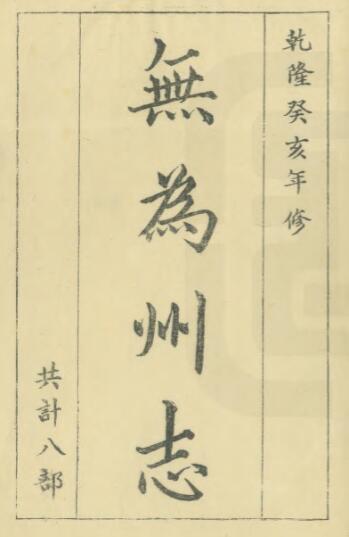 乾隆癸亥年修
無為州志
共計八部